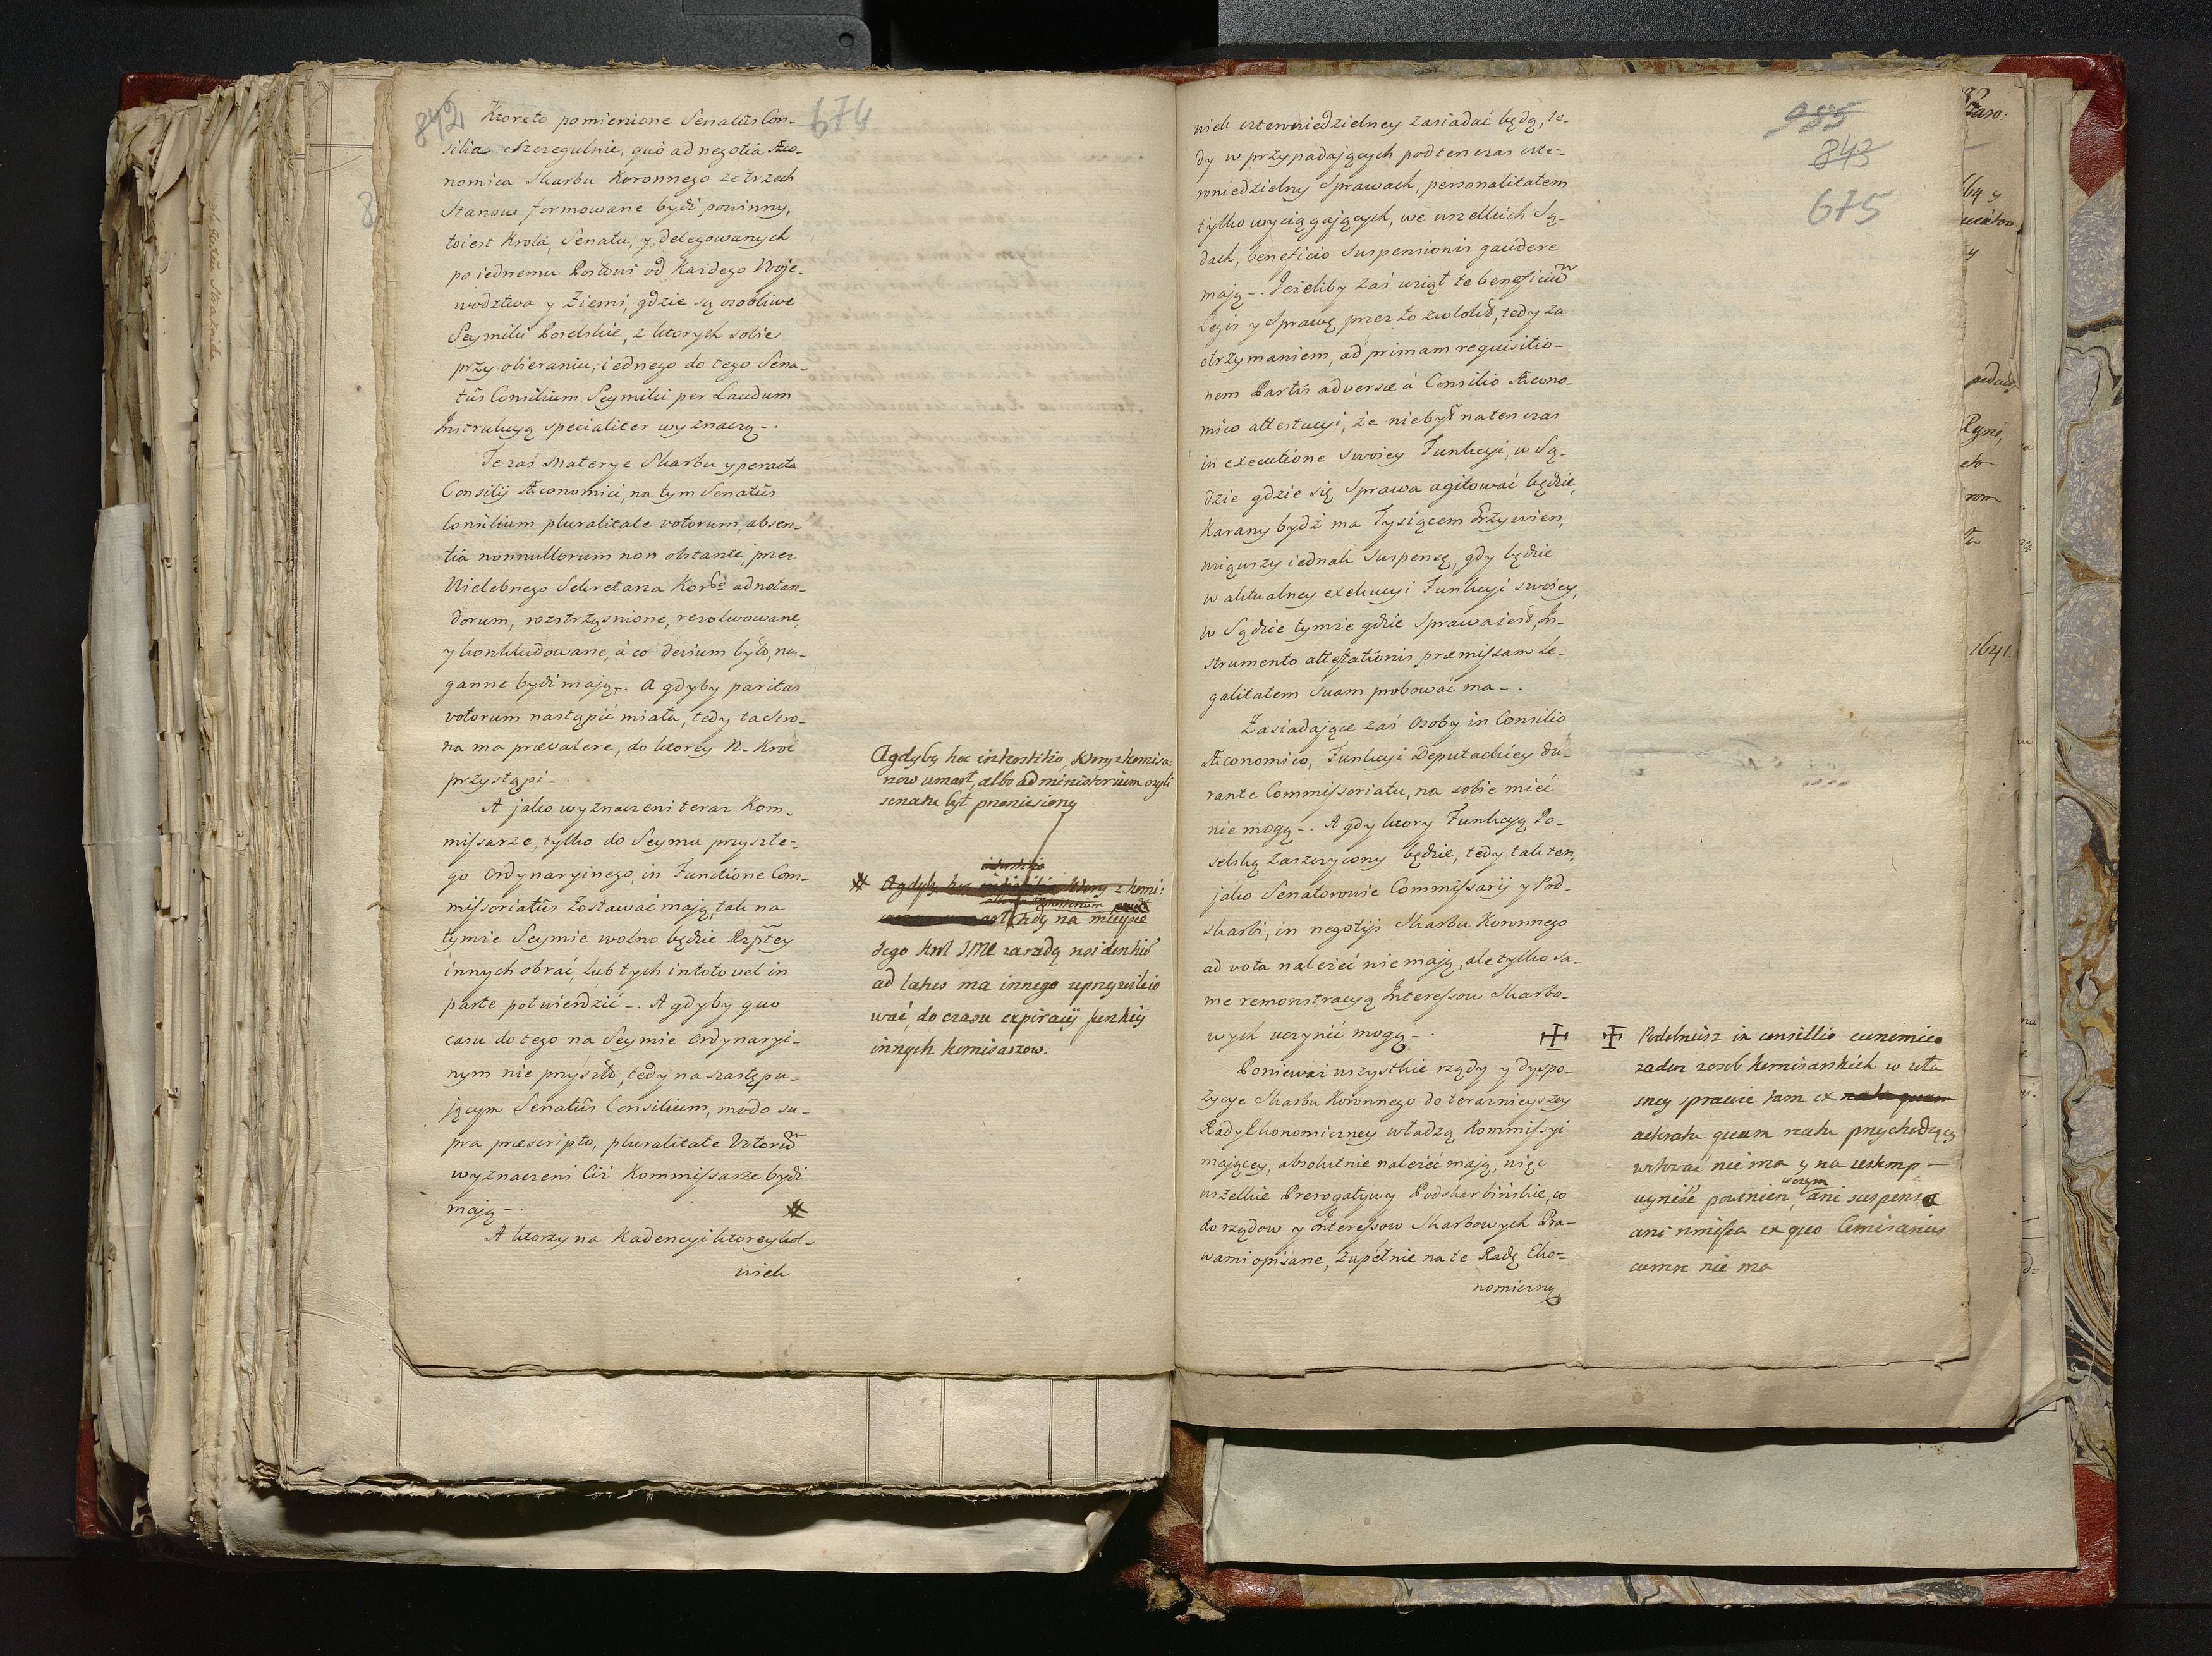 842
674
Ktoreto pomienione Senatûs Con-
silia Szczegulnie, quò ad negotia Æco-
nomica Skarbu Koronnego ze trzech
Stanow formowane bydź powinny,
toiest Krola, Senatu, y delegowanych
po iednemu Posłowi od Każdego Woje-
wodztwa y Ziemi, gdzie są osobliwe
Seymiki Poselskie, z ktorych sobie
przy obieraniu, iednego do tego Sena-
tûs Consilium Seymiki per Laudum
Instrukcyą specialiter wyznaczą-.
Te zaś Materye Skarbu y peracta
Consilij Æconomici, na tym Senatûs
Consilium pluralitate votorum, absen-
tiâ nonnullorum non obstante, przez
Wielebnego Sekretarza Kor: adnotan-
dorum, rozstrząsnione, rezolwowane,
y konkludowane, à co devium było, na-
ganne bydź mają-. A gdyby paritas
votorum nastąpić miała, tedy ta stro-
na ma prævalere, do ktorey N. Krol
przystąpi-.
A jako wyznaczeni teraz Kom-
missarze, tylko do Seymu przyszłe-
go Ordynaryinego, in Functione Com-
missoriatûs zostawać mają, tak na
tymże Seymie wolno będzie Rzptey
innych obrać, lub tych in toto vel in
parte potwierdzić-. A gdyby quo
casu do tego na Seymie Ordynaryi-
nym nie przyszło, tedy na nastepu-
jącym Senatûs Consilium, modo su-
pra præscripto, pluralitate Votorum
wyznaczeni Ciż Kommissarze bydź
mają-.
A ktorzy na Kadencyi ktoreykol-
wiek
A gdyby hoc intersticio, Ktory z komisa-
rzow umarł, albo ad ministerium czyli
senatu był przeniesiony
tedy na mieysce
tego Krol JMC za radą
ad latus ma innego
wać, do czasu expiracij funkcij
innych komisarzow.
985
843
675
wiek czteroniedzielney zasiadać będą, te-
dy w przypadających pod ten czas czte-
roniedzielny Sprawach, personalitatem
tylko wyciągających, we wszelkich Są-
dach, beneficio Suspensionis gaudere
mają-. Jeżeliby zaś wziął te beneficium
Legis y Sprawę przez to zwlokł, tedy za
otrzymaniem, ad primam requisitio-
nem Partis adversæ à Consilio Æcono-
mico attestacyi, że niebył na ten czas
in executione Swoiey Funkcyi, w Są-
dzie gdzie się Sprawa agitować będzie,
Karany bydź ma Tysiącem Grzywien,
wziąwszy iednak Suspensę, gdy będzie
w aktualney exekucyi Funkcyi swoiey,
w Sądzie tymże gdzie Sprawa iest, In-
strumento attestationis præmissam Le-
galitatem Suam probować ma-.
Zasiadające zaś Osoby in Consilio
Æconomico, Funkcyi Deputackiey du-
rante Commissoriatu, na sobie mieć
nie mogą-. A gdy ktory Funkcyą Po-
selską zaszczycony będzie, tedy tak ten,
jako Senatorowie Commissarij y Pod-
skarbi, in negotijs Skarbu Koronnego
ad vota należeć nie mają, ale tylko sa-
me remonstracyą Interessow Skarbo-
wych uczynić mogą-.
Ponieważ wszystkie rządy y dyspo-
zycye Skarbu Koronnego do teraznieyszey
Rady Ekonomiczney władzą Kommissyi
mającey, absolutnie należeć mają, więc
wszelkie Prerogatywy Podskarbińskie, co
do rządow y Interessow Skarbowych Pra-
wami opisane, zupełnie na te Radę Eko-
nomiczną
in consillio
zaden z osob komisarskich w wła
sney sprawie tam ex
actoratu quam reatu przychodzący
nie ma y na ustęmp-
powinien, ani suspensa
ani ex quo Comisarius
nie ma